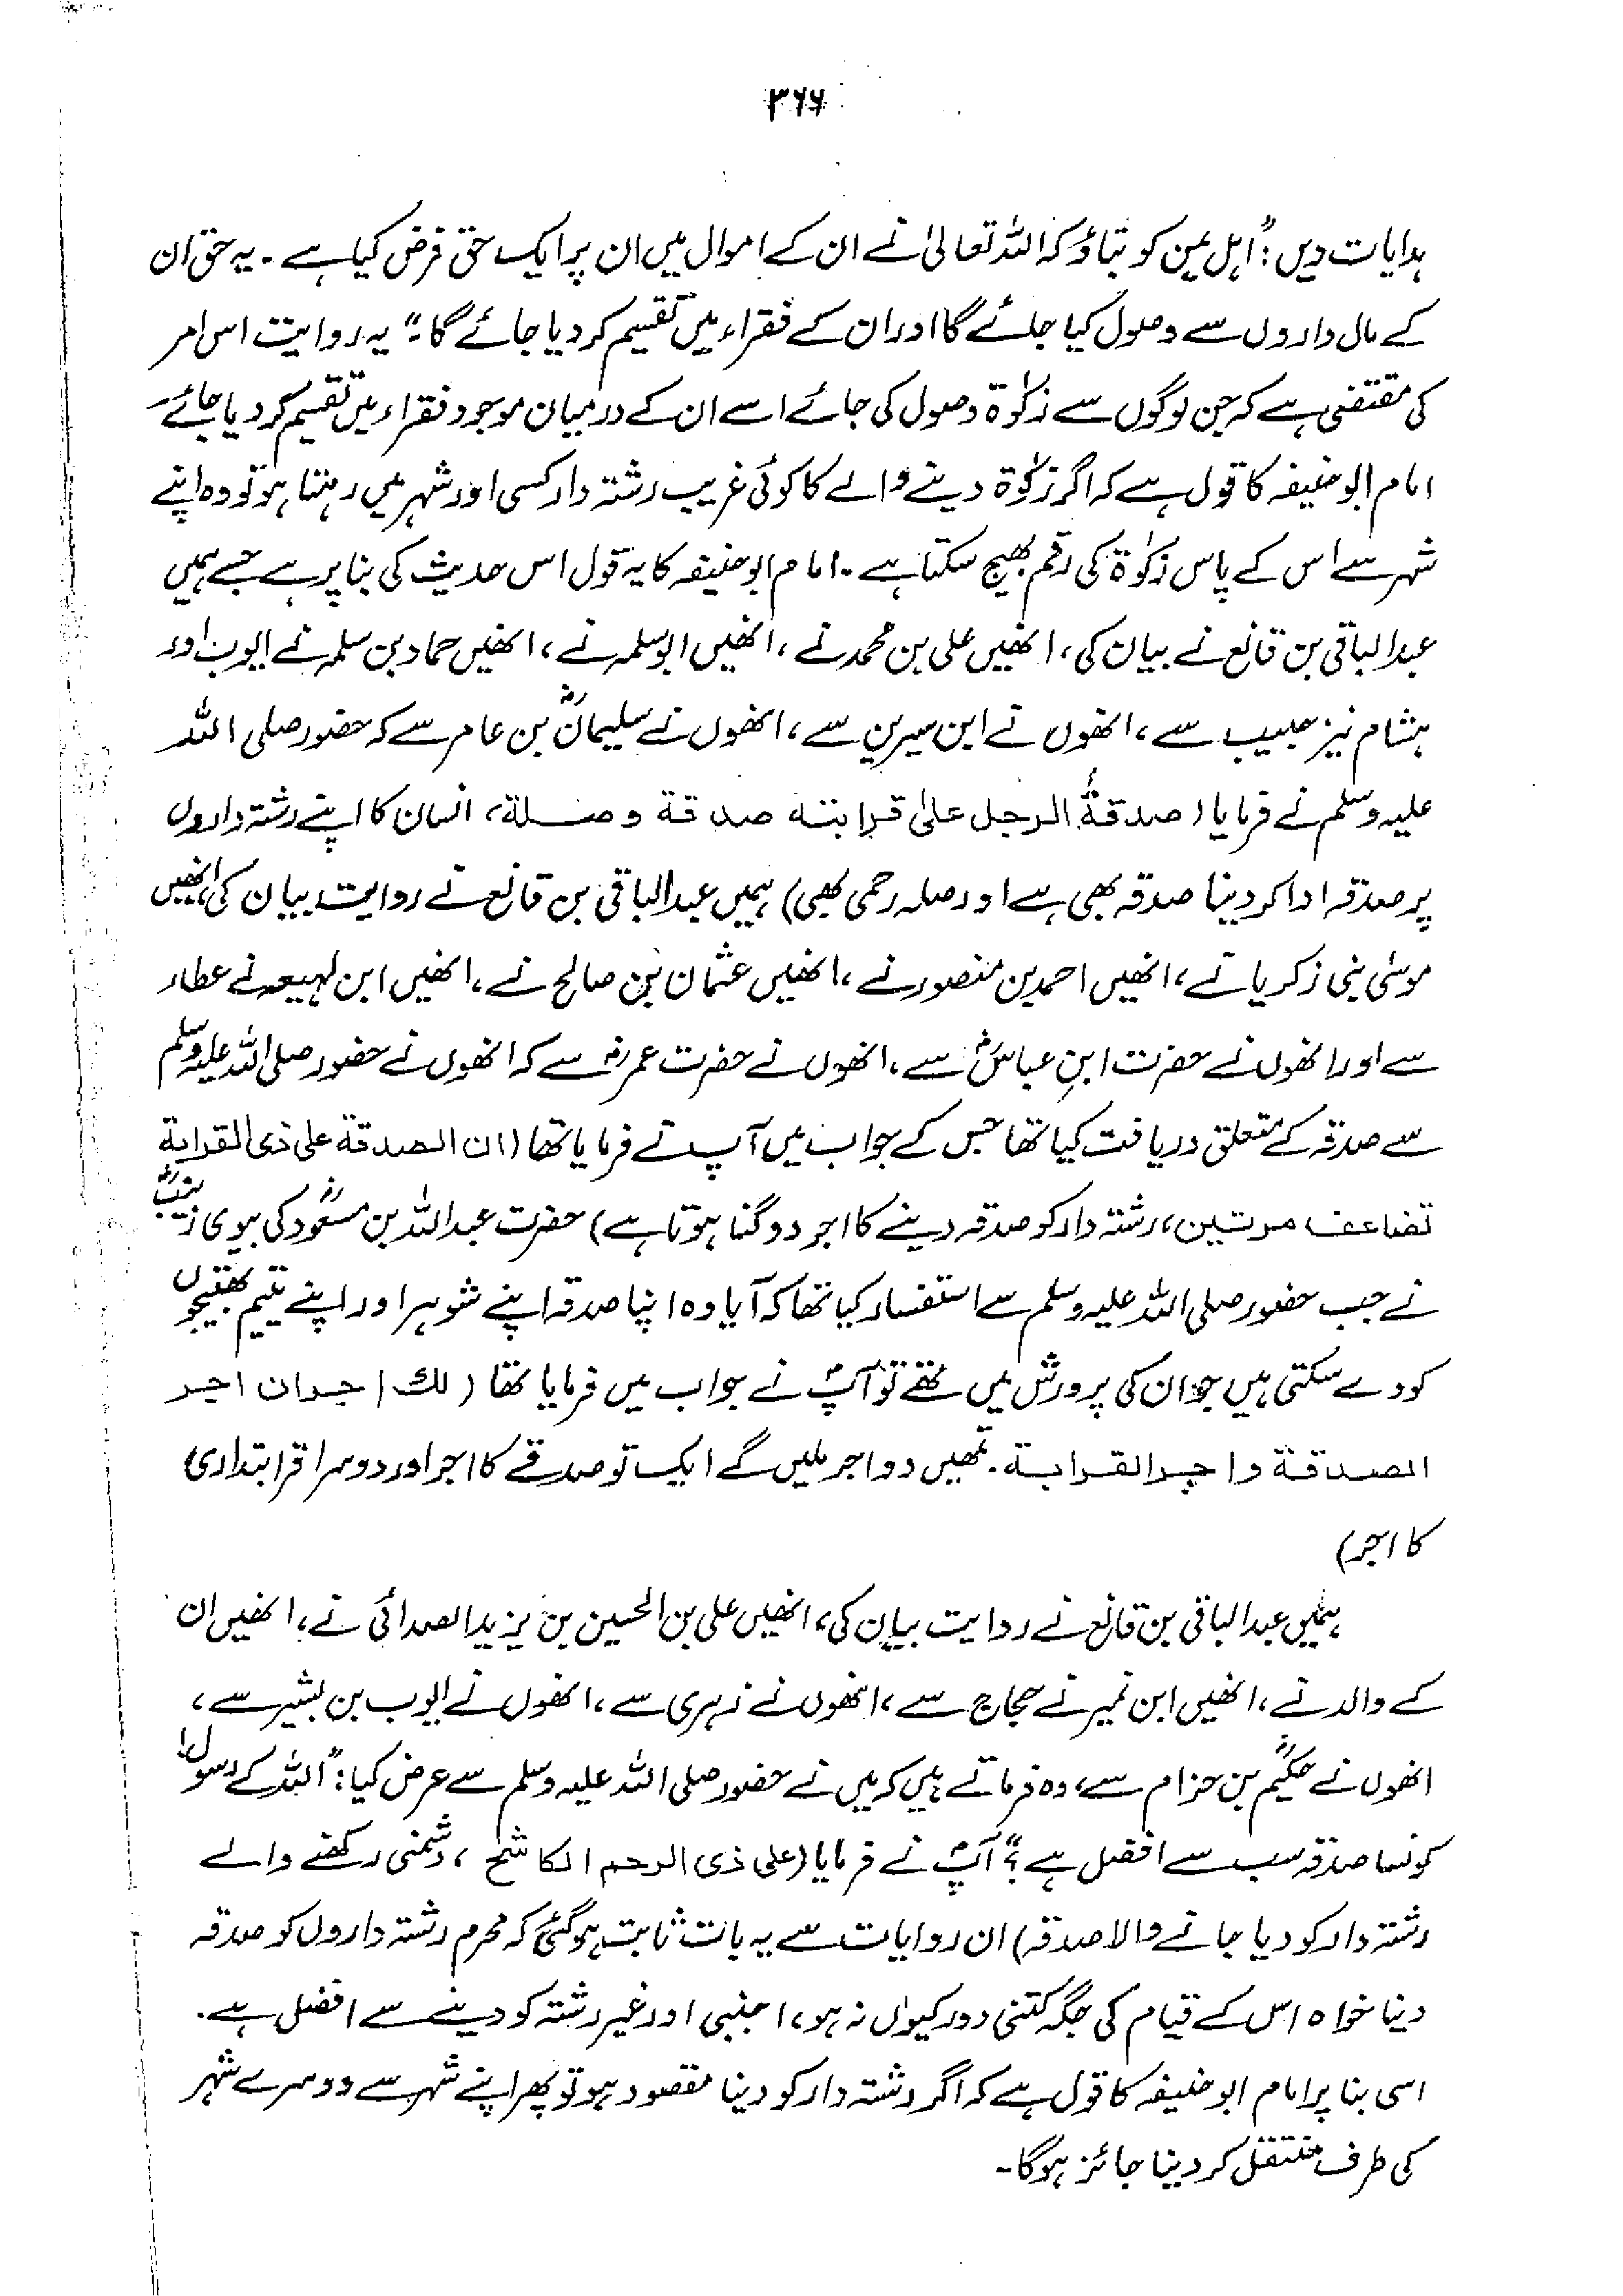 ۳۶۶
ہدایات دیں: "اہل یمن کو بتاؤ کہ اللہ تعالیٰ نے ان کے اموال میں ان پر ایک حق فرض کیا ہے۔ یہ حق ان
کے مال داروں سے وصول کیا جائے گا اور ان کے فقراء میں تقسیم کر دیا جائے گا۔" یہ روایت اس امر
کی مقتضی ہے کہ جن لوگوں سے زکوٰۃ وصول کی جائے اسے ان کے درمیان موجود فقراء میں تقسیم کر دیا جائے۔
امام ابو حنیفہ کا قول ہے کہ اگر زکوٰۃ دینے والے کا کوئی غریب رشتہ دار کسی اور شہر میں رہتا ہو تو وہ اپنے
شہر سے اس کے پاس زکوٰۃ کی رقم بھیج سکتا ہے۔ امام ابو حنیفہ کا یہ قول اس حدیث کی بنا پر ہے جسے ہمیں
عبد الباقی بن قانع نے بیان کی، انھیں علی بن محمد نے، انھیں ابو سلمہ نے، انھیں حماد بن سلمہ نے ایوب اور
ہشام نیز حبیب سے، انھوں نے ابن سیرین سے، انھوں نے سلیمانؓ بن عامر سے کہ حضور صلی اللہ
علیہ وسلم نے فرمایا (صدقۃُ الرجل علیٰ قرابتہ صدقة وصلة، انسان کا اپنے رشتہ داروں
پر صدقہ ادا کر دینا صدقہ بھی ہے اور صلہ رحمی بھی) ہمیں عبد الباقی بن قانع نے روایت بیان کی، انھیں
موسیٰ بنی زکریا نے، انھیں احمد بن منصور نے، انھیں عثمان بن صالح نے، انھیں ابن لہیعہ نے عطار
سے اور انھوں نے حضرت ابنِ عباسؓ سے، انھوں نے حضرت عمرؓ سے کہ انھوں نے حضور صلی اللہ علیہ وسلم
سے صدقہ کے متعلق دریافت کیا تھا جس کے جواب میں آپ نے فرمایا تھا (ان الصدقة علی ذی القرابة
تضاعف مرتین، رشتہ دار کو صدقہ دینے کا اجر دو گنا ہوتا ہے) حضرت عبد اللہ بن مسعودؓ کی بیوی زینبؓ
نے جب حضور صلی اللہ علیہ وسلم سے استفسار کیا تھا کہ آیا وہ اپنا صدقہ اپنے شوہر اور اپنے یتیم بھتیجوں
کو دے سکتی ہیں جو ان کی پرورش میں تھے تو آپؐ نے جواب میں فرمایا تھا (لك اجران اجر
الصدقة واجر القرابة۔ تمھیں دو اجر ملیں گے ایک تو صدقے کا اجر اور دوسرا قرابتداری
کا اجر)
ہمیں عبد الباقی بن قانع نے روایت بیان کی، انھیں علی بن الحسین بن یزید الصدائی نے، انھیں ان
کے والد نے، انھیں ابن نمیر نے حجاج سے، انھوں نے زہری سے، انھوں نے ایوب بن بشیر سے،
انھوں نے حکیمؓ بن حزام سے، وہ فرماتے ہیں کہ میں نے حضور صلی اللہ علیہ وسلم سے عرض کیا: "اللہ کے رسول!
کونسا صدقہ سب سے افضل ہے؟" آپؐ نے فرمایا (علی ذی الرحم الکاشح، دشمنی رکھنے والے
رشتہ دار کو دیا جانے والا صدقہ) ان روایات سے یہ بات ثابت ہو گئی کہ محرم رشتہ داروں کو صدقہ
دینا خواہ اس کے قیام کی جگہ کتنی دور کیوں نہ ہو، اجنبی اور غیر رشتہ کو دینے سے افضل ہے۔
اسی بنا پر امام ابو حنیفہ کا قول ہے کہ اگر رشتہ دار کو دینا مقصود ہو تو پھر اپنے شہر سے دوسرے شہر
کی طرف منتقل کر دینا جائز ہوگا۔